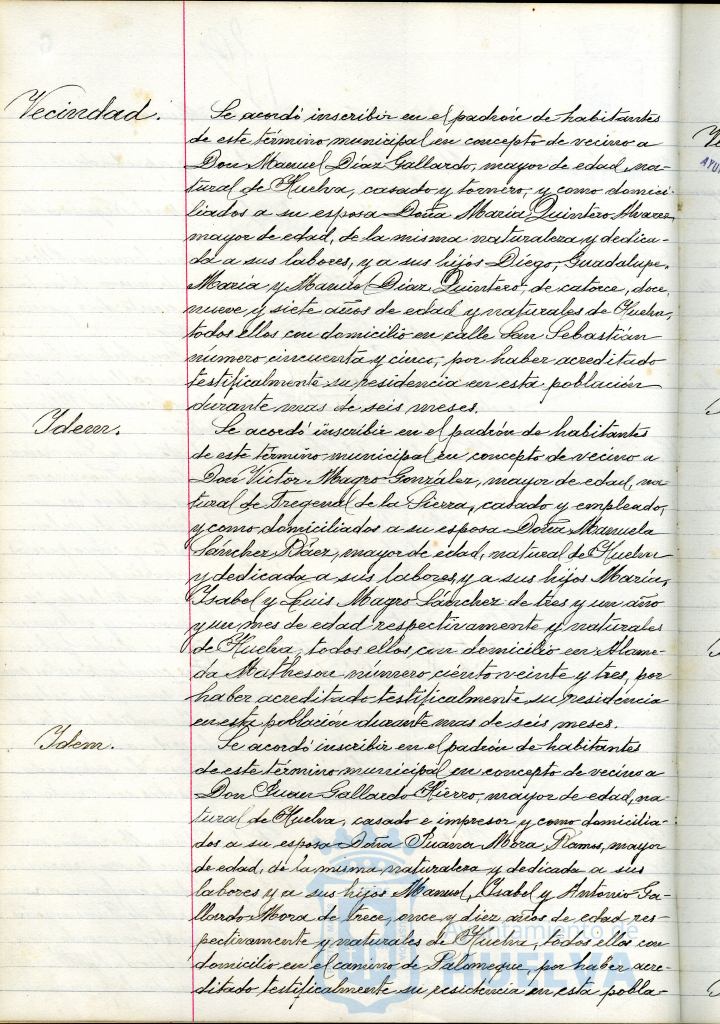 Vecindad.
Se acordó inscribir en el padrón de habitantes
de este término municipal en concepto de vecino a
Don Manuel Díaz Gallardo, mayor de edad, na-
tural de Huelva, casado y tornero, y como domici-
liados a su esposa Doña María Quintero Alvarez,
mayor de edad, de la misma naturaleza y dedica-
da a sus labores, y a sus hijos Diego, Guadalupe,
María y Manuel Díaz Quintero, de catorce, doce,
nueve y siete años de edad y naturales de Huelva,
todos ellos con domicilio en calle San Sebastián
número cincuenta y cinco, por haber acreditado
testificalmente su residencia en esta población
durante mas de seis meses.
Idem.
Se acordó inscribir en el padrón de habitantes
de este término municipal en concepto de vecino a
Don Víctor Magro González, mayor de edad, na-
tural de Fregenal de la Sierra, casado y empleado,
y como domiciliados a su esposa Doña Manuela
Sánchez Báez, mayor de edad, natural de Huelva
y dedicada a sus labores, y a sus hijos María,
Isabel y Luis Magro Sánchez de tres y un año
y un mes de edad respectivamente y naturales
de Huelva, todos ellos con domicilio en Alame-
da Matheson número ciento veinte y tres, por
haber acreditado testificalmente su residencia
en esta población durante mas de seis meses.
Idem.
Se acordó inscribir en el padrón de habitantes
de este término municipal en concepto de vecino a
Don Juan Gallardo Hierro, mayor de edad, na-
tural de Huelva, casado e impresor y como domicilia-
dos a su esposa Doña Juana Mora Ramos, mayor
de edad, de la misma naturaleza y dedicada a sus
labores y a sus hijos Manuel, Isabel y Antonio Ga-
llardo Mora de trece, once y diez años de edad res-
pectivamente y naturales de Huelva, todos ellos con
domicilio en el camino de Palomeque, por haber acre-
ditado testificalmente su residencia en esta pobla-
Ayuntamiento de
HUELVA